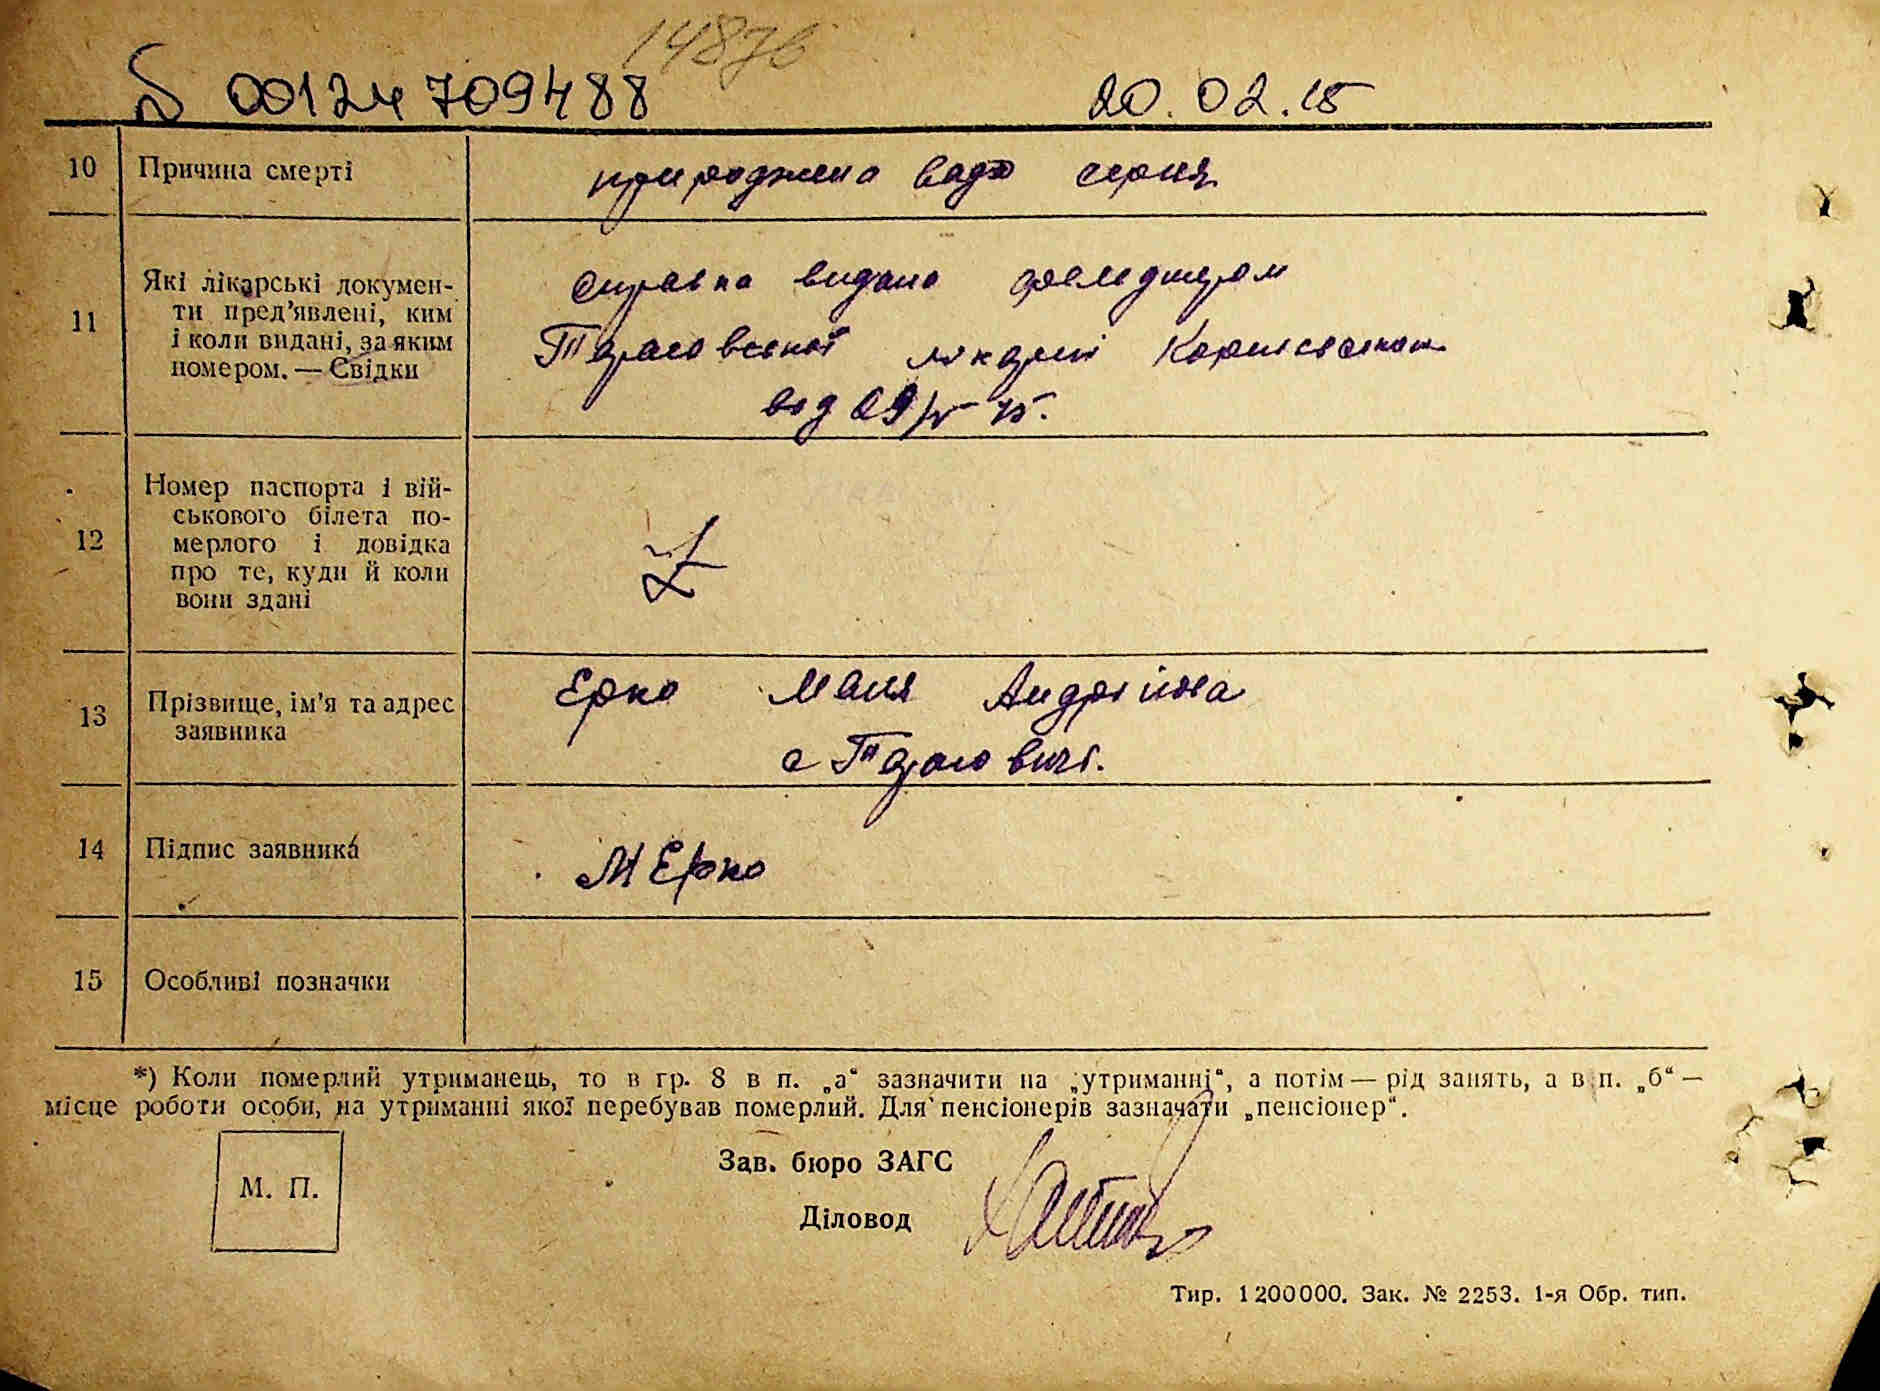 1487в
00124709488 20.02.15
10 Причина смерті природжена вада серця
11 Які лікарські докумен-
ти пред'явлені, ким
і коли видані, за яким
номером. — Свідки
справка видана фельдшером
Тарасовської лікарні
від 09/IV-75.
12 Номер паспорта і вій-
ськового білета по-
мерлого і довідка
про те, куди й коли
вони здані
Z
13 Прізвище, ім'я та адрес
заявника
Ерко Маня Андріївна
с Тарасовичі.
14 Підпис заявника МЕрко
15 Особливі позначки
*) Коли померлий утриманець, то в гр. 8 в п. „а“ зазначити на „утриманні“, а потім — рід занять, а в п. „б“ —
місце роботи особи, на утриманні якої перебував померлий. Для пенсіонерів зазначати „пенсіонер“.
М. П.
Зав. бюро ЗАГС
Діловод
Тир. 1200000. Зак. № 2253. 1-я Обр. тип.